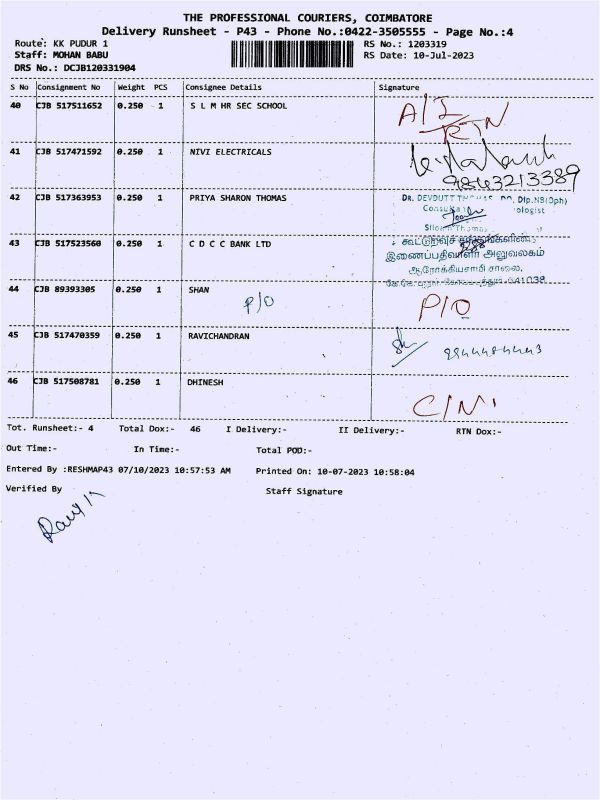 THE PROFESSIONAL COURIERS, COIMBATORE
Delivery Runsheet - P43 - Phone No.:0422-3505555 - Page No.:4
Route: KK PUDUR 1 RS No.: 1203319
Staff: MOHAN BABU RS Date: 10-Jul-2023
DRS No.: DCJB120331904
S No Consignment No Weight PCS Consignee Details Signature
40 CJB 517511652 0.250 1 S L M HR SEC SCHOOL A/I
RTN
41 CJB 517471592 0.250 1 NIVI ELECTRICALS
9843213389
42 CJB 517363953 0.250 1 PRIYA SHARON THOMAS DR. DEVDUTT THOMAS DO, Dip.NB(Oph)
43 CJB 517523560 0.250 1 C D C C BANK LTD கூட்டுறவுச்
இணைப்பதிவாளர் அலுவலகம்
ஆரோக்கியசாமி சாலை,
641038
44 CJB 89393305 0.250 1 SHAN P/O P/O
45 CJB 517470359 0.250 1 RAVICHANDRAN
46 CJB 517508781 0.250 1 DHINESH C/N
Tot. Runsheet:- 4 Total Dox:- 46 I Delivery:- II Delivery:- RTN Dox:-
Out Time:- In Time:- Total POD:-
Entered By :RESHMAP43 07/10/2023 10:57:53 AM Printed On: 10-07-2023 10:58:04
Verified By Staff Signature